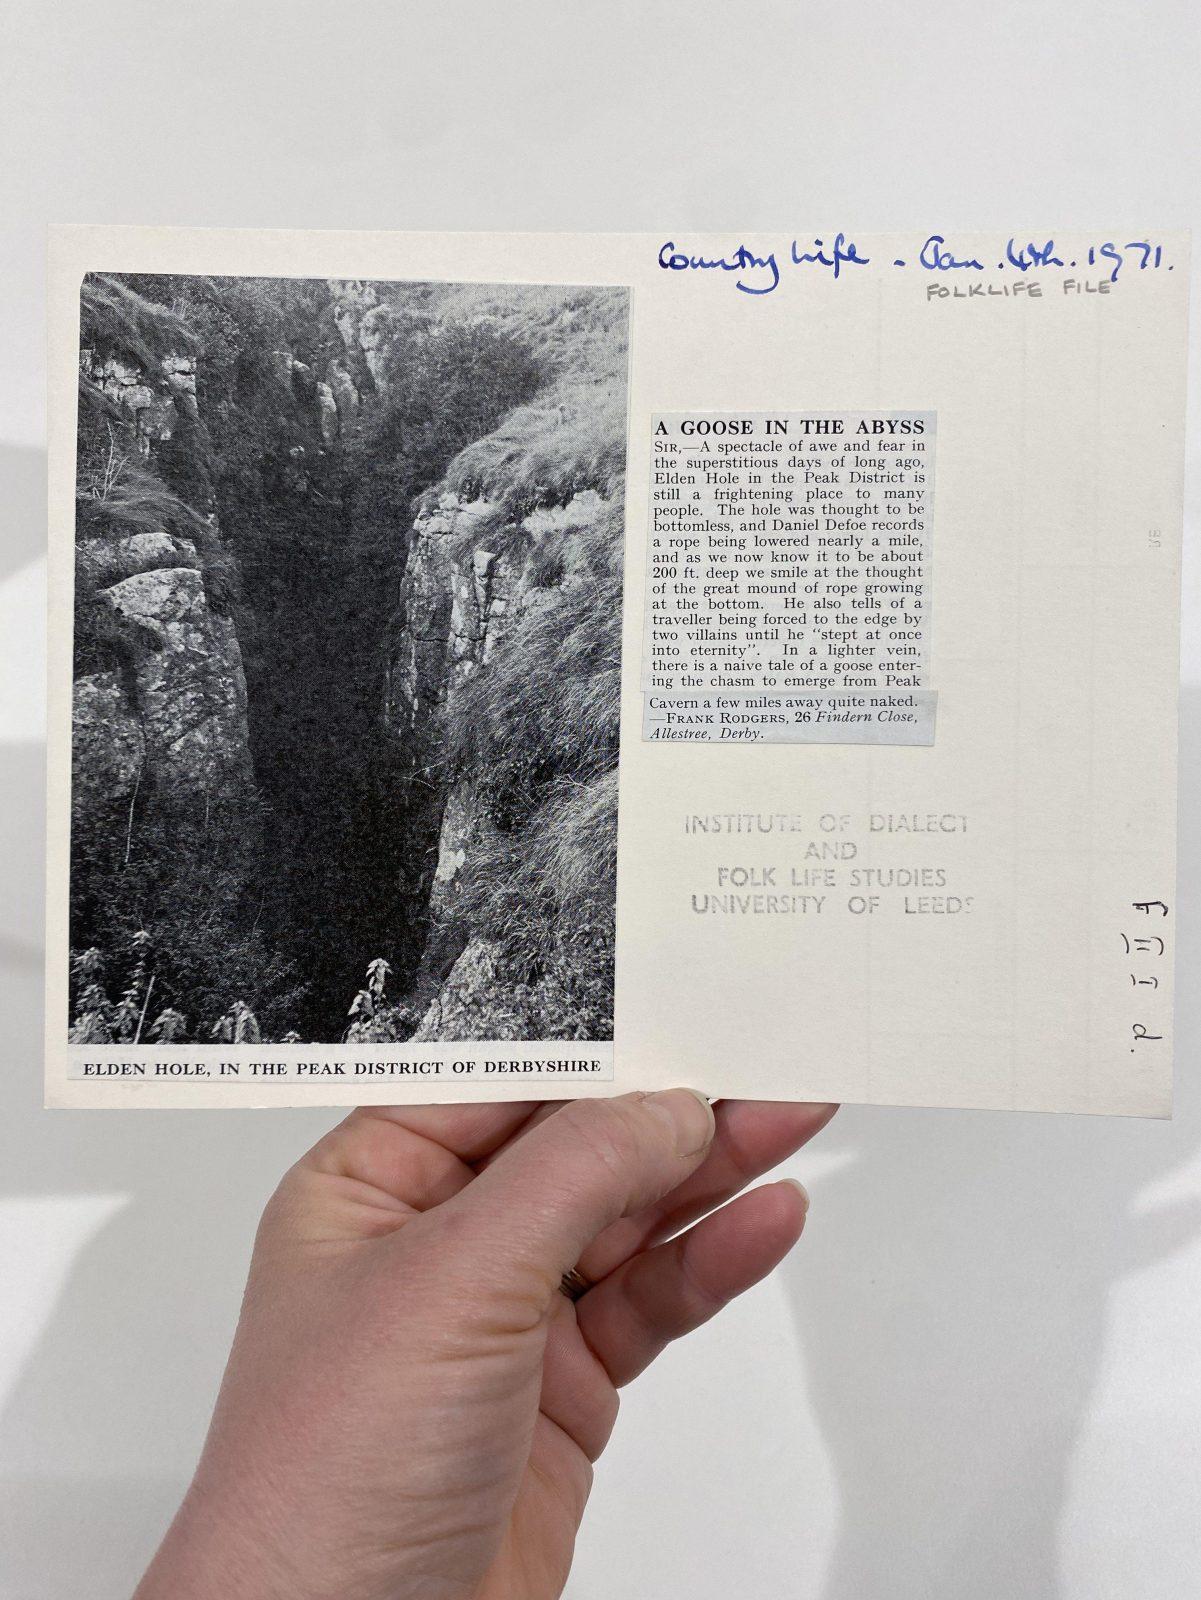 Country Life - Jan. 4th. 1971.
FOLKLIFE FILE
A GOOSE IN THE ABYSS
SIR,—A spectacle of awe and fear in
the superstitious days of long ago,
Elden Hole in the Peak District is
still a frightening place to many
people. The hole was thought to be
bottomless, and Daniel Defoe records
a rope being lowered nearly a mile,
and as we now know it to be about
200 ft. deep we smile at the thought
of the great mound of rope growing
at the bottom. He also tells of a
traveller being forced to the edge by
two villains until he “stept at once
into eternity”. In a lighter vein,
there is a naive tale of a goose enter-
ing the chasm to emerge from Peak
Cavern a few miles away quite naked.
—FRANK RODGERS, 26 Findern Close,
Allestree, Derby.
INSTITUTE OF DIALECT
AND
FOLK LIFE STUDIES
UNIVERSITY OF LEEDS
ELDEN HOLE, IN THE PEAK DISTRICT OF DERBYSHIRE